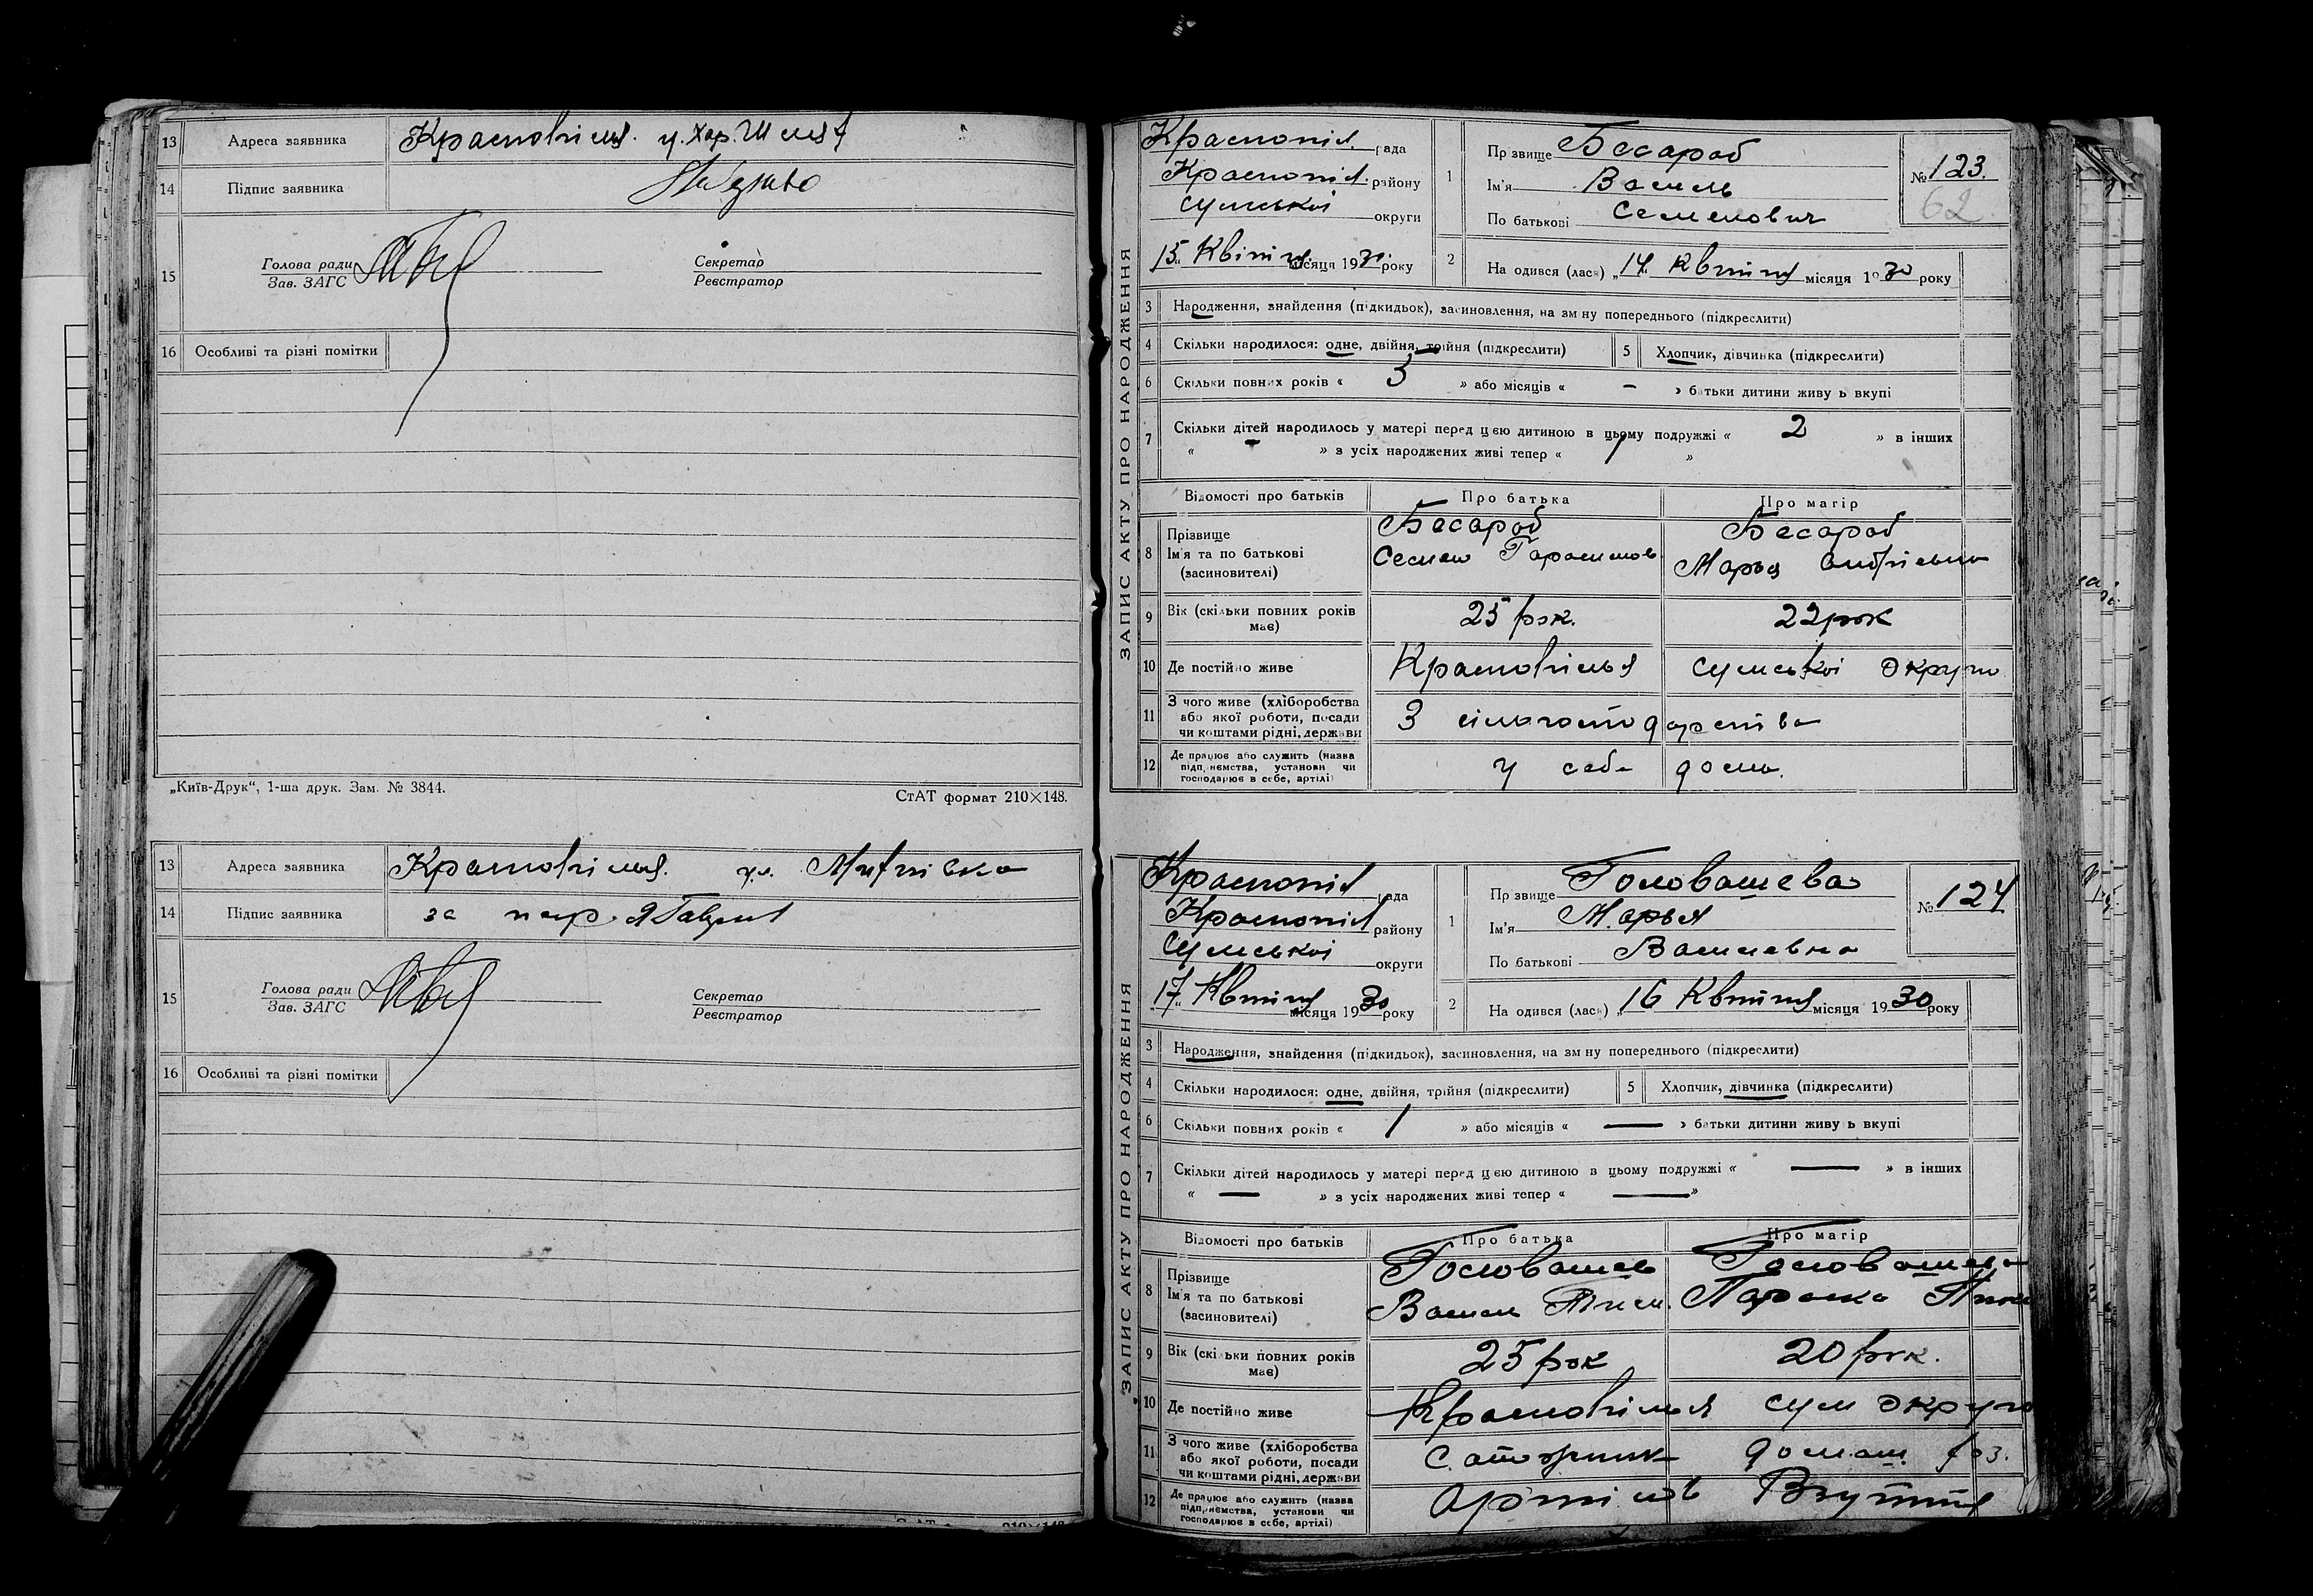 13 Адреса заявника Краснопілля.
14 Підпис заявника
15 Голова ради Секретар
Зав. ЗАГС Реєстратор
16 Особливі та різні помітки
„Київ-Друк“, 1-ша друк. Зам. № 3844.
СтАТ формат 210×148.
13 Адреса заявника Краснопілля. ул.
14 Підпис заявника за
15 Голова ради Секретар
Зав. ЗАГС Реєстратор
16 Особливі та різні помітки
ЗАПИС АКТУ ПРО НАРОДЖЕННЯ
Краснопіл. рада
Краснопіл. району
Сумської округи
15 Квітня місяця 1930 року
1 Прізвище Бесараб
Ім'я Василь
По батькові Семенович
№ 123.
62
2 На одився (лася) „14 Квітня місяця 1930 року
3 Народження, знайдення (підкидьок), засиновлення, на зм ну попереднього (підкреслити)
4 Скільки народилося: одне, двійня, трійня (підкреслити) 5 Хлопчик, дівчинка (підкреслити)
6 Скільки повних років « 3 » або місяців « – » батьки дитини живу ь вкупі
7 Скільки дітей народилось у матері перед цією дитиною в цьому подружжі « 2 » в інших
« – » з усіх народжених живі тепер « 1 »
Відомості про батьків Про батька Про матір
8 Прізвище Бесараб Бесараб
Ім'я та по батькові Семен Гарасимов Марья Андріевна
(засиновителі)
9 Вік (скільки повних років 25 рок. 22 рок
має)
10 Де постійно живе Краснопілля Сумської Округи
11 З чого живе (хліборобства З сільгосподарства
або якої роботи, посади
чи коштами рідні, держави
12 Де працює або служить (назва у себе дома.
підприємства, установи чи
господарює в себе, артілі)
ЗАПИС АКТУ ПРО НАРОДЖЕННЯ
Краснопіл рада
Краснопіл району
Сумської округи
17 Квітня місяця 1930 року
1 Пр звище Головашева
Ім'я Марья
По батькові Васильевна
№ 124
2 На одився (лася) „16 Квітня місяця 1930 року
3 Народження, знайдення (підкидьок), засиновлення, на зм ну попереднього (підкреслити)
4 Скільки народилося: одне, двійня, трійня (підкреслити) 5 Хлопчик, дівчинка (підкреслити)
6 Скільки повних років « 1 » або місяців « — » батьки дитини живу ь вкупі
7 Скільки дітей народилось у матері перед цією дитиною в цьому подружжі « — » в інших
« — » з усіх народжених живі тепер « — »
Відомості про батьків Про батька Про матір
8 Прізвище Головашев Головашева
Ім'я та по батькові Васил Параска
(засиновителі)
9 Вік (скі ьки повних років 25 рок 20 рок.
має)
10 Де постійно живе Краснопілля Сум Округи
11 З чого живе (хліборобства домаш.
або якої роботи, посади
чи коштами рідні, держави
12 Де працює або служить (назва
підприємства, установи чи
господарює в себе, артілі)